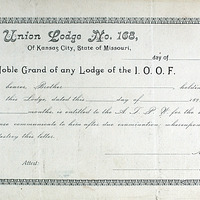 Union Lodge No. 168,
Of Kansas City, State of Missouri,
day of
Noble Grand of any Lodge of the I. O. O. F.
bearer, Brother holding
this Lodge, dated this day of 189
months, is entitled to the A. T. P. W. for the
communicate to him after due examination, whereupon
destroy this letter.
Attest: